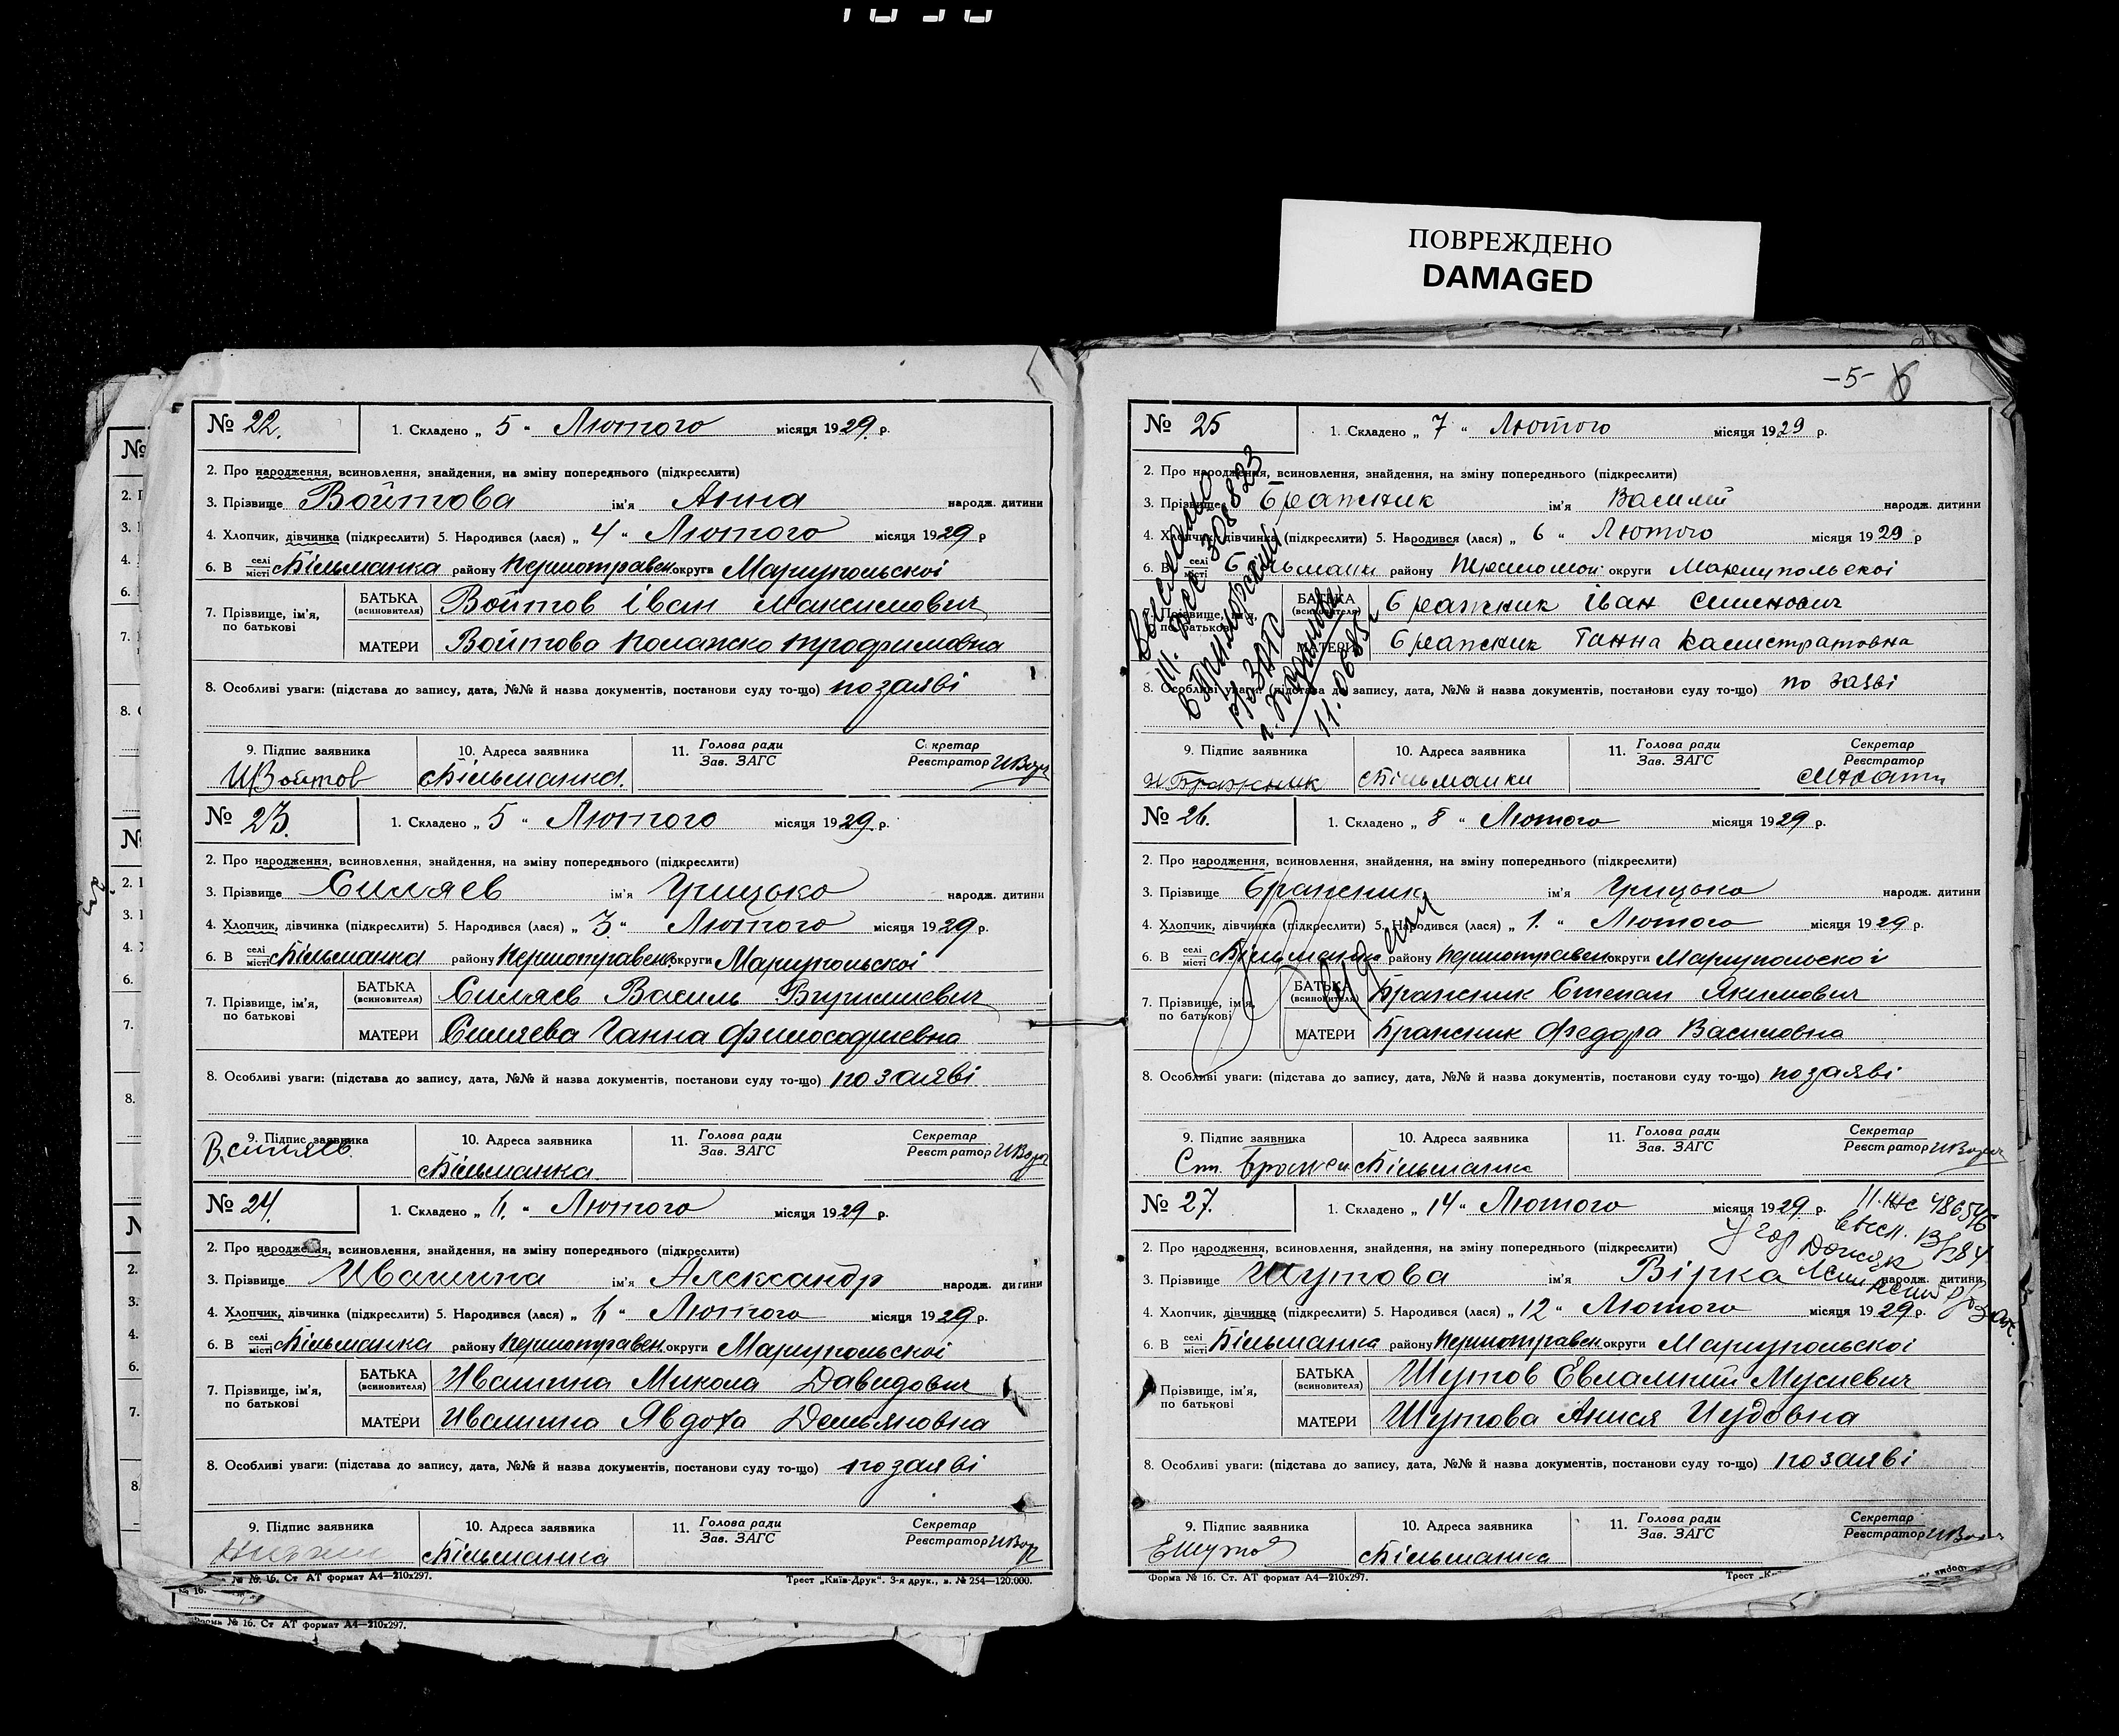 ПОВРЕЖДЕНО
DAMAGED
№ 22.
1. Складено „ 5 " Лютого місяця 1929. р.
2. Про народження, всиновлення, знайдення, на зміну попереднього (підкреслити)
3. Прізвище Войтова ім'я Анна народж. дитини
4. Хлопчик, дівчинка (підкреслити) 5. Народився (лася) „ 4 " Лютого місяця 1929 р
6. В селі місті Більманка району Першотравен. округи Маріупольскоі
7. Прізвище, ім'я, по батькові
БАТЬКА (всиновителя) Войтов Іван Максимович
МАТЕРИ Войтова Трофимовна
8. Особливі уваги: (підстава до запису, дата, №№ й назва документів, постанови суду то-що) по заяві
9. Підпис заявника 10. Адреса заявника 11. Голова ради Зав. ЗАГС Секретар Реєстратор
ИВойтов Більманка.
№ 23.
1. Складено „ 5 " Лютого місяця 1929. р.
2. Про народження, всиновлення, знайдення, на зміну попереднього (підкреслити)
3. Прізвище Силяєв ім'я Грицько народж. дитини
4. Хлопчик, дівчинка (підкреслити) 5. Народився (лася) „ 3. " Лютого місяця 1929 р.
6. В селі місті Більманка району Першотравен. округи Маріупольскоі
7. Прізвище, ім'я, по батькові
БАТЬКА (всиновителя) Силяєв Василь
МАТЕРИ Силяєва Ганна
8. Особливі уваги: (підстава до запису, дата, №№ й назва документів, постанови суду то-що) по заяві
9. Підпис заявника 10. Адреса заявника 11. Голова ради Зав. ЗАГС Секретар Реєстратор
В. Силяєв Більманка
№ 24.
1. Складено „ 6. " Лютого місяця 1929 р.
2. Про народження, всиновлення, знайдення, на зміну попереднього (підкреслити)
3. Прізвище ім'я Александр народж. дитини
4. Хлопчик, дівчинка (підкреслити) 5. Народився (лася) „ 6 " Лютого місяця 1929 р.
6. В селі місті Більманка району Першотравен. округи Маріупольскоі
7. Прізвище, ім'я, по батькові
БАТЬКА (всиновителя) Микола Давидович
МАТЕРИ Явдоха Демьяновна
8. Особливі уваги: (підстава до запису, дата, №№ й назва документів, постанови суду то-що) по заяві
9. Підпис заявника 10. Адреса заявника 11. Голова ради Зав. ЗАГС Секретар Реєстратор
Більманка
№ 16. Ст АТ формат А4—210x297. Трест „Київ-Друк". 3-я друк., в. № 254—120.000.
Форма № 16. Ст АТ формат А4—210x297.
–5–
№ 25
1. Складено „ 7 " Лютого місяця 1929 р.
2. Про народження, всиновлення, знайдення, на зміну попереднього (підкреслити)
3. Прізвище Бражник ім'я Василий народж. дитини
4. Хлопчик, дівчинка (підкреслити) 5. Народився (лася) „ 6 " Лютого місяця 1929 р
6. В селі місті Більманки району округи Маріупольскоі
7. Прізвище, ім'я, по батькові
БАТЬКА (всиновителя) Бражник Іван Семенович
МАТЕРИ Бражник Ганна Калистратовна
8. Особливі уваги: (підстава до запису, дата, №№ й назва документів, постанови суду то-що) по заяві
9. Підпис заявника 10. Адреса заявника 11. Голова ради Зав. ЗАГС Секретар Реєстратор
Бражник Більманки
308823
11.06.85г
№ 26.
1. Складено „ 8 " Лютого місяця 1929 р.
2. Про народження, всиновлення, знайдення, на зміну попереднього (підкреслити)
3. Прізвище Бражник ім'я Грицько народж. дитини
4. Хлопчик, дівчинка (підкреслити) 5. Народився (лася) „ 1. " Лютого місяця 1929 р.
6. В селі місті Більманка району Першотравен округи Маріупольскоі
7. Прізвище, ім'я, по батькові
БАТЬКА (всиновителя) Бражник Степан Якимович
МАТЕРИ Бражник Федора Василовна
8. Особливі уваги: (підстава до запису, дата, №№ й назва документів, постанови суду то-що) по заяві
9. Підпис заявника 10. Адреса заявника 11. Голова ради Зав. ЗАГС Секретар Реєстратор
Більманка
№ 27.
1. Складено „ 14 " Лютого місяця 1929. р.
2. Про народження, всиновлення, знайдення, на зміну попереднього (підкреслити)
3. Прізвище Шутова ім'я Вірка народж. дитини
4. Хлопчик, дівчинка (підкреслити) 5. Народився (лася) „ 12 " Лютого місяця 1929 р.
6. В селі місті Більманка району Першотравен. округи Маріупольскоі
7. Прізвище, ім'я, по батькові
БАТЬКА (всиновителя) Шутов Евлампий Мусиевич
МАТЕРИ Шутова
8. Особливі уваги: (підстава до запису, дата, №№ й назва документів, постанови суду то-що) по заяві
9. Підпис заявника 10. Адреса заявника 11. Голова ради Зав. ЗАГС Секретар Реєстратор
ЕШутов Більманка
Форма № 16. Ст. АТ формат А4—210x297.